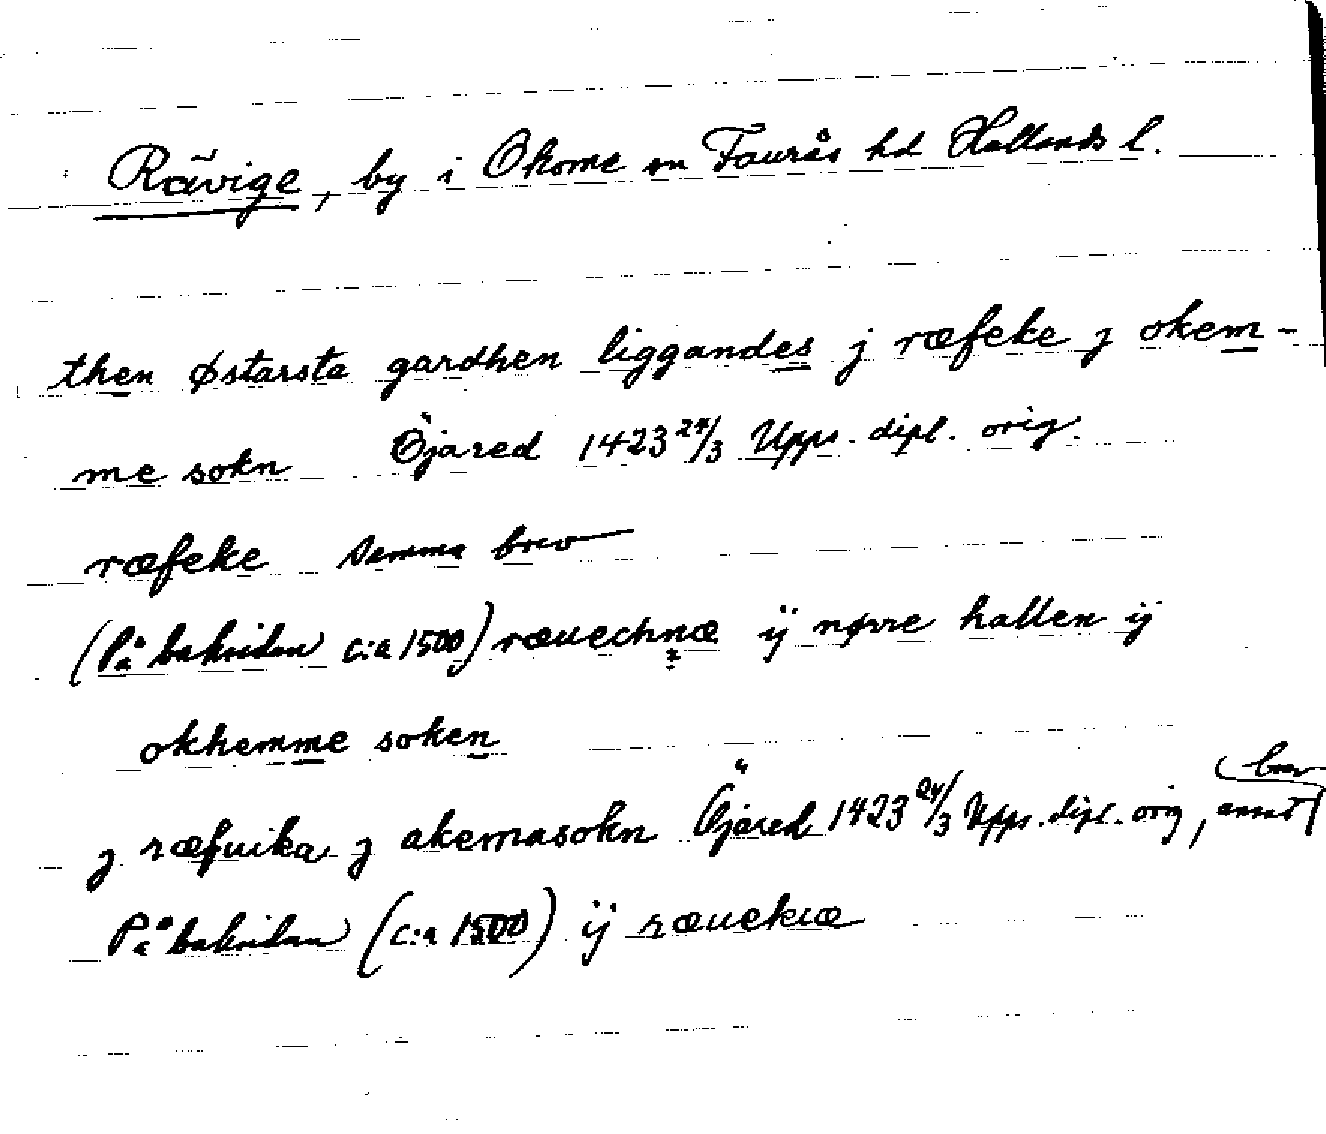 Rävige, by i Okome sn Faurås hd Hallands l.
then østarsta gardhen liggandes j ræfeke j okem-
me sokn Öjared 1423 24/3 Upps. dipl. orig.
ræfeke samma brev
(På baksidan c:a 1500)ræuechnæ ij nørre hallen ij
okhemme soken
j ræfuika j akemasokn Öjared 1423 24/3 Upps. dipl. orig, annat brev
På baksidan (c:a 1500) ij ræuekiæ